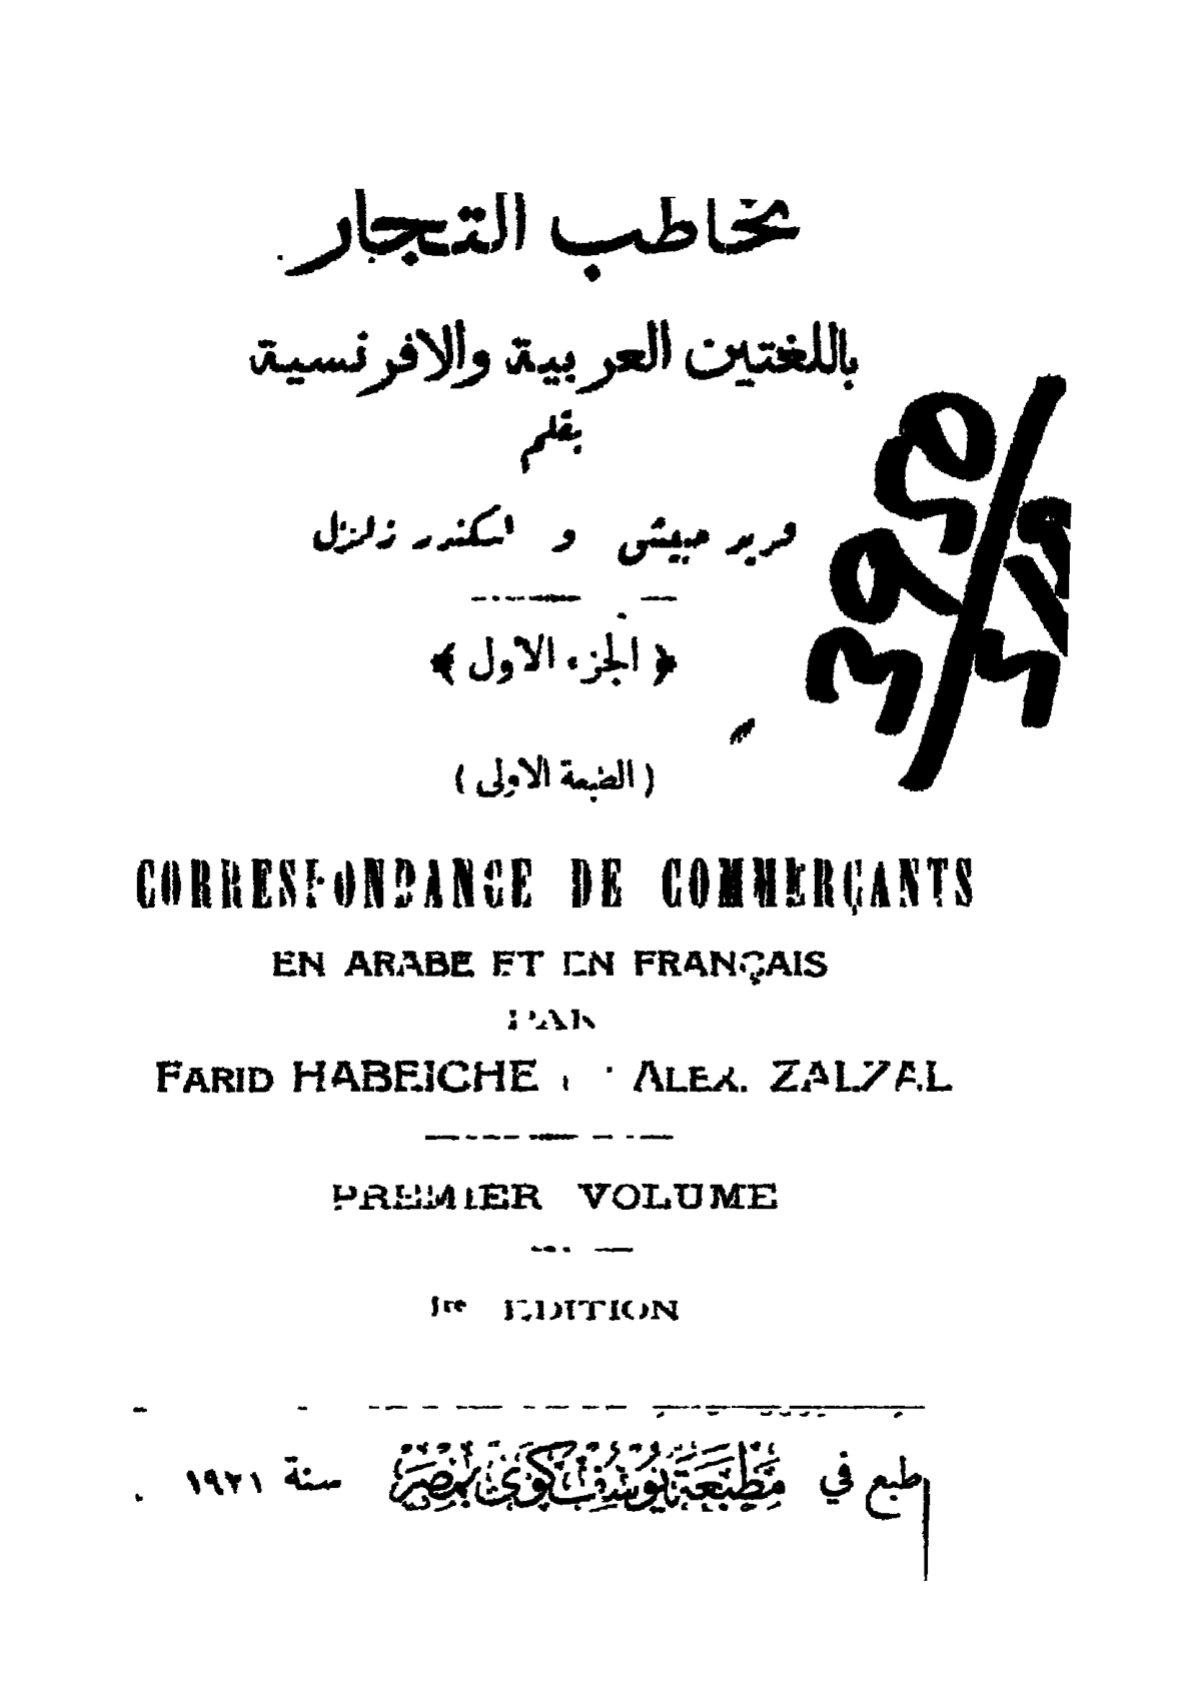 تخاطب التجار
باللغتين العربية والافرنسية
بقلم
فريد حبيش و اسكندر زلزل
﴿ الجزء الاول ﴾
(الطبعة الاولى)
CORRESPONDANCE DE COMMERÇANTS
EN ARABE ET EN FRANÇAIS
PAR
FARID HABEICHE ALEX. ZALZAL
PREMIER VOLUME
1re EDITION
طبع في مَطْبَعَة يُوسُف كوى بمصر سنة ١٩٢١